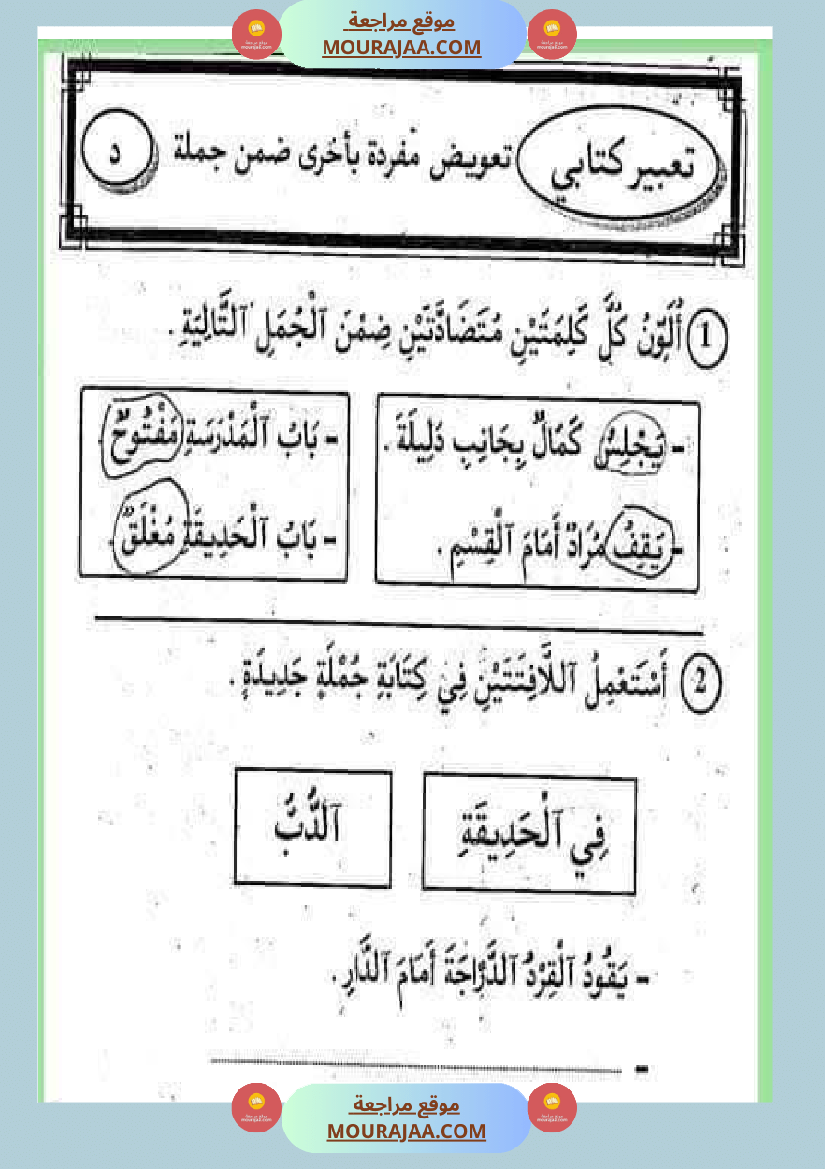 موقع مراجعة
MOURAJAA.COM
تعبير كتابي تعويض مفردة بأخرى ضمن جملة د
1 أُلَوِّنُ كُلَّ كَلِمَتَيْنِ مُتَضَادَّتَيْنِ ضِمْنَ ٱلْجُمَلِ ٱلتَّالِيَةِ .
- يَجْلِسُ كَمَالٌ بِجَانِبِ دَلِيلَةَ .
- يَقِفُ مُرَادٌ أَمَامَ ٱلْقِسْمِ .
- بَابُ ٱلْمَدْرَسَةِ مَفْتُوحٌ .
- بَابُ ٱلْحَدِيقَةِ مُغْلَقٌ .
2 أَسْتَعْمِلُ ٱللَّافِتَتَيْنِ فِي كِتَابَةِ جُمْلَةٍ جَدِيدَةٍ .
فِي ٱلْحَدِيقَةِ
ٱلدُّبُّ
- يَقُودُ ٱلْقِرْدُ ٱلدَّرَّاجَةَ أَمَامَ ٱلدَّارِ .
-
موقع مراجعة
MOURAJAA.COM